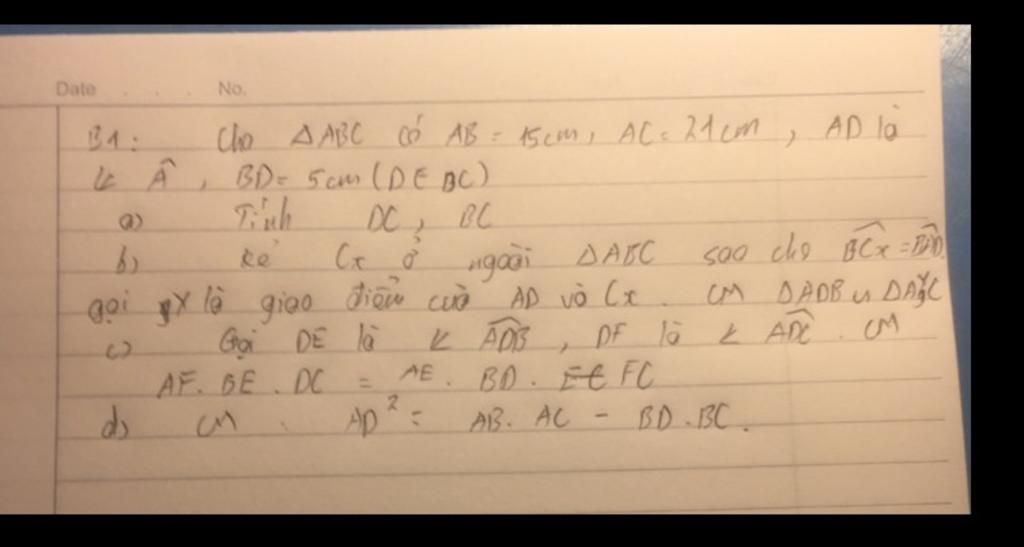 Date . . . No.
B1: Cho ΔABC có AB = 15cm, AC = 21cm, AD là
∠ Â, BD = 5cm (D ∈ BC)
a) Tính DC, BC
b) Kẻ Cx ở ngoài ΔABC sao cho BCx = BAD.
gọi X là giao điểm của AD và Cx. CM ΔADB ∽ ΔAXC
c) Gọi DE là ∠ ADB, DF là ∠ ADC. CM
AF. BE. DC = AE. BD. FC
d) CM. AD² = AB. AC - BD.BC.